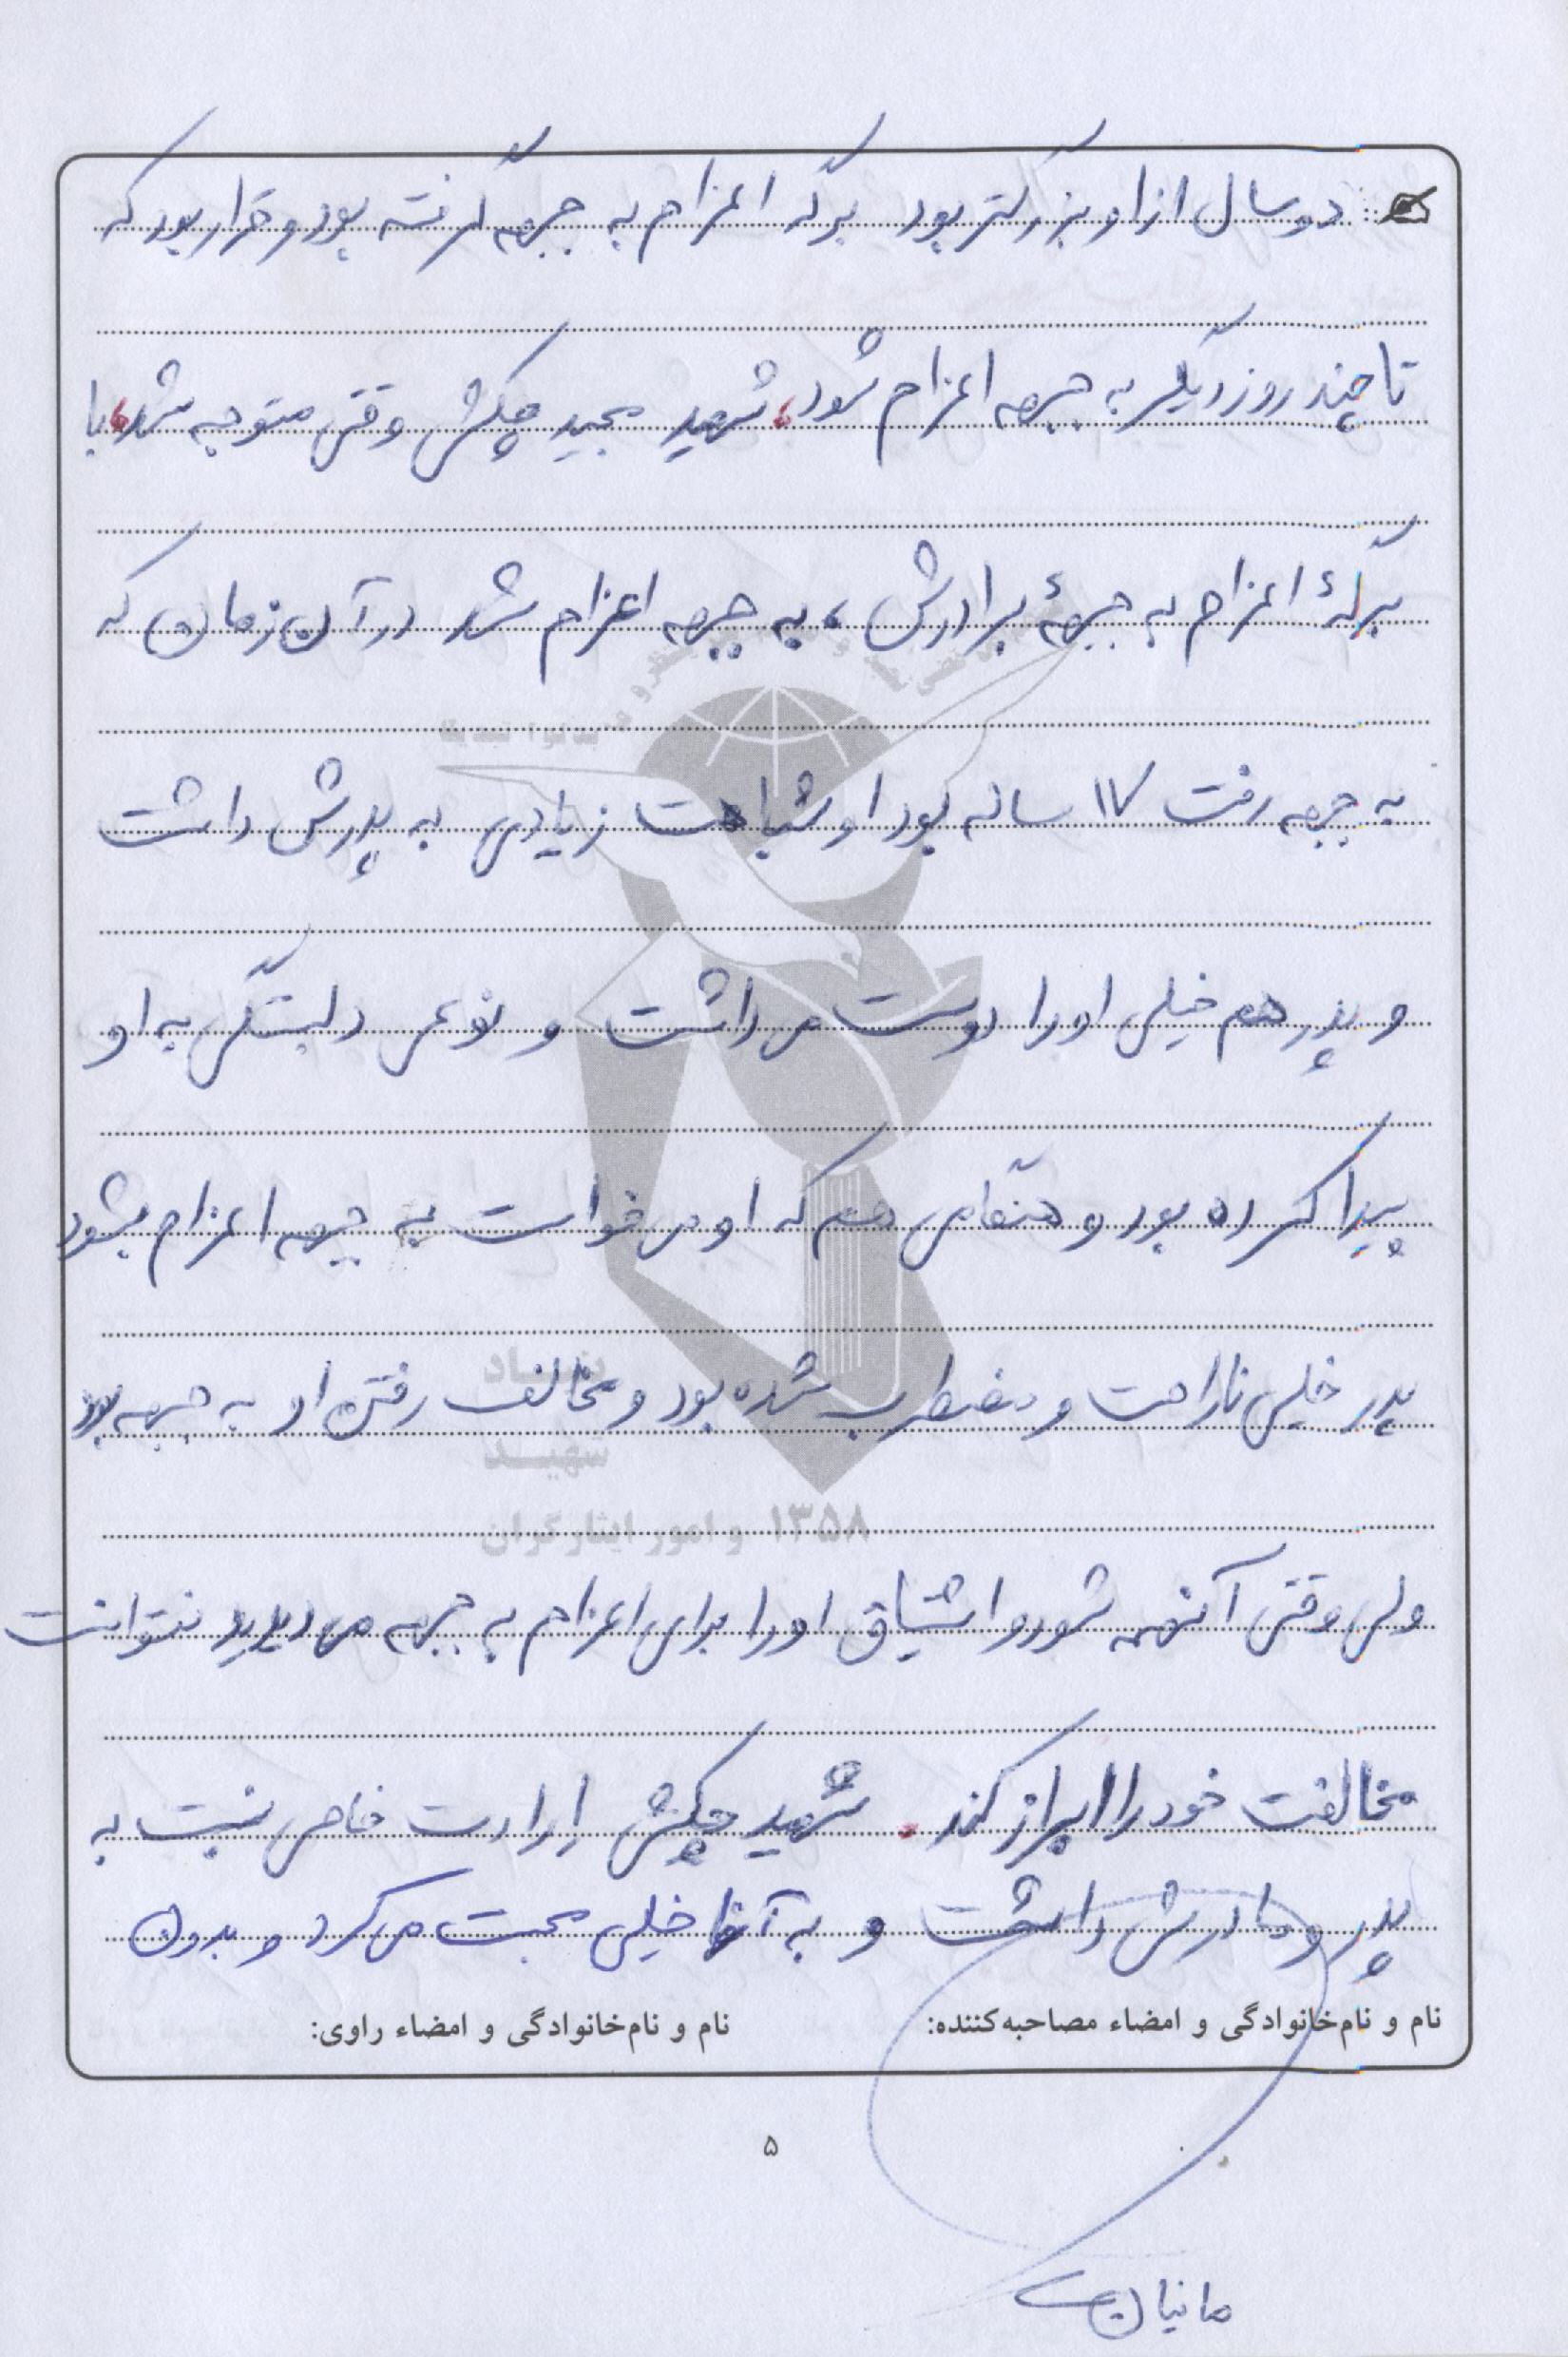 دو سال از او بزرگتر بود برگه اعزام به جبهه گرفته بود و قرار بود که
تا چند روز دیگر به جبهه اعزام شود، شهید مجید چکش وقتی متوجه شد، با
برگهٔ اعزام به جبههٔ برادرش، به جبهه اعزام شد در آن زمان که
به جبهه رفت ۱۷ ساله بود او شباهت زیادی به پدرش داشت
و پدر هم خیلی او را دوست می داشت و نوعی دلبستگی به او
پیدا کرده بود و هنگامی هم که او می خواست به جبهه اعزام بشود
پدر خیلی ناراحت و مضطرب شده بود و مخالف رفتن او به جبهه بود
بنیاد
شهید
و امور ایثارگران ۱۳۵۸
ولی وقتی آنهمه شور و اشتیاق او را برای اعزام به جبهه می دید نتوانست
مخالفت خود را ابراز کند. شهید چکش ارادت خاصی نسبت به
پدر و مادرش داشت و به آنها خیلی محبت می کرد و بدون
نام و نام‌خانوادگی و امضاء مصاحبه‌کننده: نام و نام‌خانوادگی و امضاء راوی:
۵